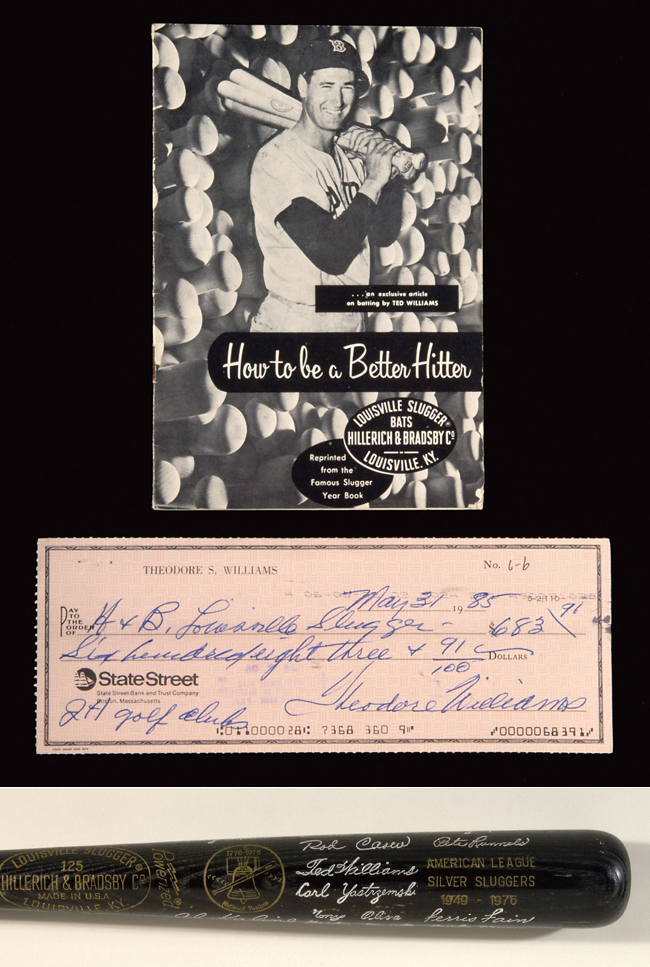 B
...an exclusive article
on batting by TED WILLIAMS
How to be a Better Hitter
LOUISVILLE SLUGGER®
BATS
HILLERICH & BRADSBY Cº
LOUISVILLE, KY.
Reprinted
from the
Famous Slugger
Year Book
THEODORE S. WILLIAMS
No. 6-6
May 31 1985
PAY TO THE ORDER OF H & B, Louisville Slugger - $683 91
Six hundred eight three & 91/100 DOLLARS
State Street
State Street Bank and Trust Company
Boston, Massachusetts
2H golf clubs
Theodore Williams
7368 360 9 0000068391
LOUISVILLE SLUGGER
125
HILLERICH & BRADSBY Cº
MADE IN U.S.A.
LOUISVILLE, KY.
Powerized
1776-1976
Rod Carew
Pete Runnels
Ted Williams
Carl Yastrzemski
Tony Oliva
Ferris Fain
AMERICAN LEAGUE
SILVER SLUGGERS
1949 - 1976